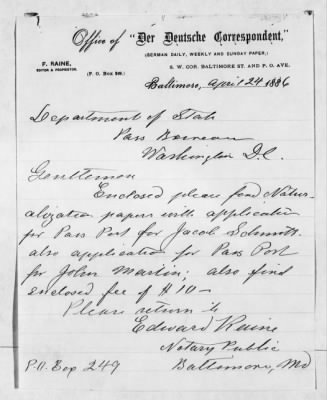 Office of "Der Deutsche Correspondent,"
(GERMAN DAILY, WEEKLY AND SUNDAY PAPER,)
F. RAINE,
EDITOR & PROPRIETOR.
(P. O. Box 249.)
S. W. COR. BALTIMORE ST. AND P. O. AVE.
Baltimore, April 24 1886
Department of State
Pass Bureau
Washington D.C.
Gentlemen
Enclosed please find Natur-
alization papers with application
for Pass Port for Jacob Schmitt.
also application for Pass Port
for John Martin; also find
enclosed fee of $10—
Please return to
Edward Raine
Notary Public
P.O. Box 249
Baltimore, Md